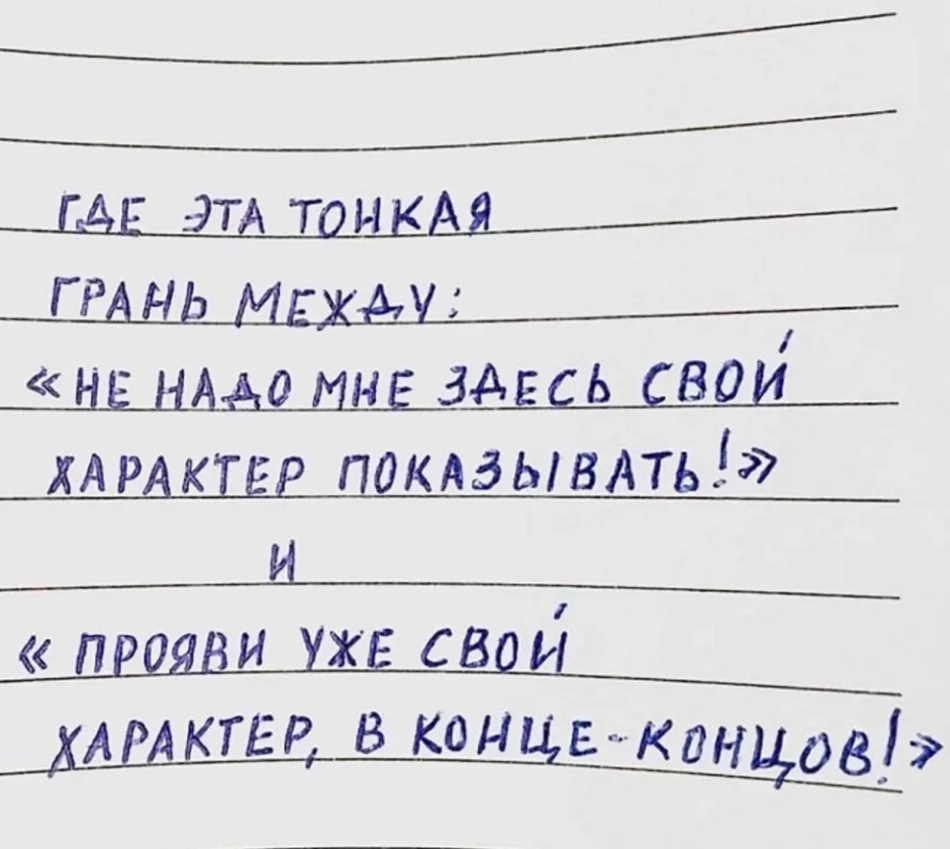 ГДЕ ЭТА ТОНКАЯ
ГРАНЬ МЕЖДУ:
«НЕ НАДО МНЕ ЗДЕСЬ СВОЙ
ХАРАКТЕР ПОКАЗЫВАТЬ!»
И
« ПРОЯВИ УЖЕ СВОЙ
ХАРАКТЕР, В КОНЦЕ-КОНЦОВ!»